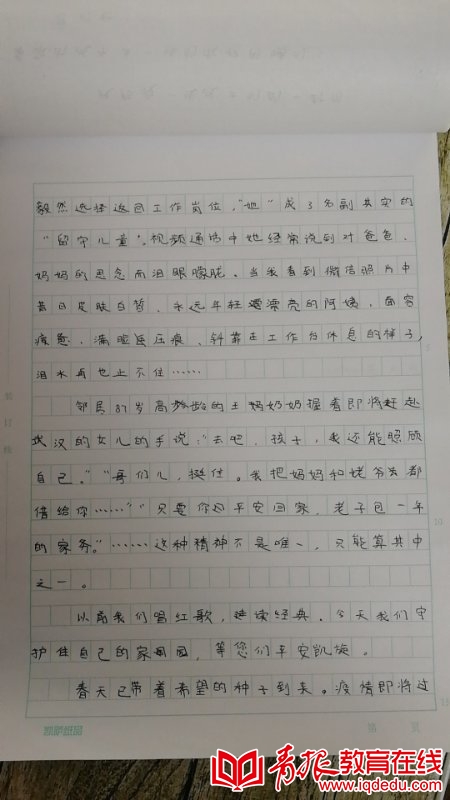 毅然选择返回工作岗位，“她”成了名副其实的
“留守儿童”。视频通话中她经常说到对爸爸、
妈妈的思念而泪眼朦胧。当我看到微信照片中
昔日皮肤白皙、永远年轻漂亮的阿姨，面容
疲惫、满脸压痕、斜靠在工作台休息的样子，
泪水再也止不住……
邻居87岁高龄的王妈奶奶握着即将赶赴
武汉的女儿的手说：“去吧，孩子，我还能照顾
自己。”“哥们儿，挺住。我把妈妈和姥爷都
借给你……”“只要你平安回家，老子包一年
的家务。”……这种精神不是唯一，只能算其中
之一。
以前我们唱红歌，诵读经典，今天我们守
护住自己的家园，等您们平安凯旋。
春天已带着希望的种子到来。疫情即将过
装订线
5
10
15
凯萨纸品
第 页
青报教育在线
www.iqdedu.com